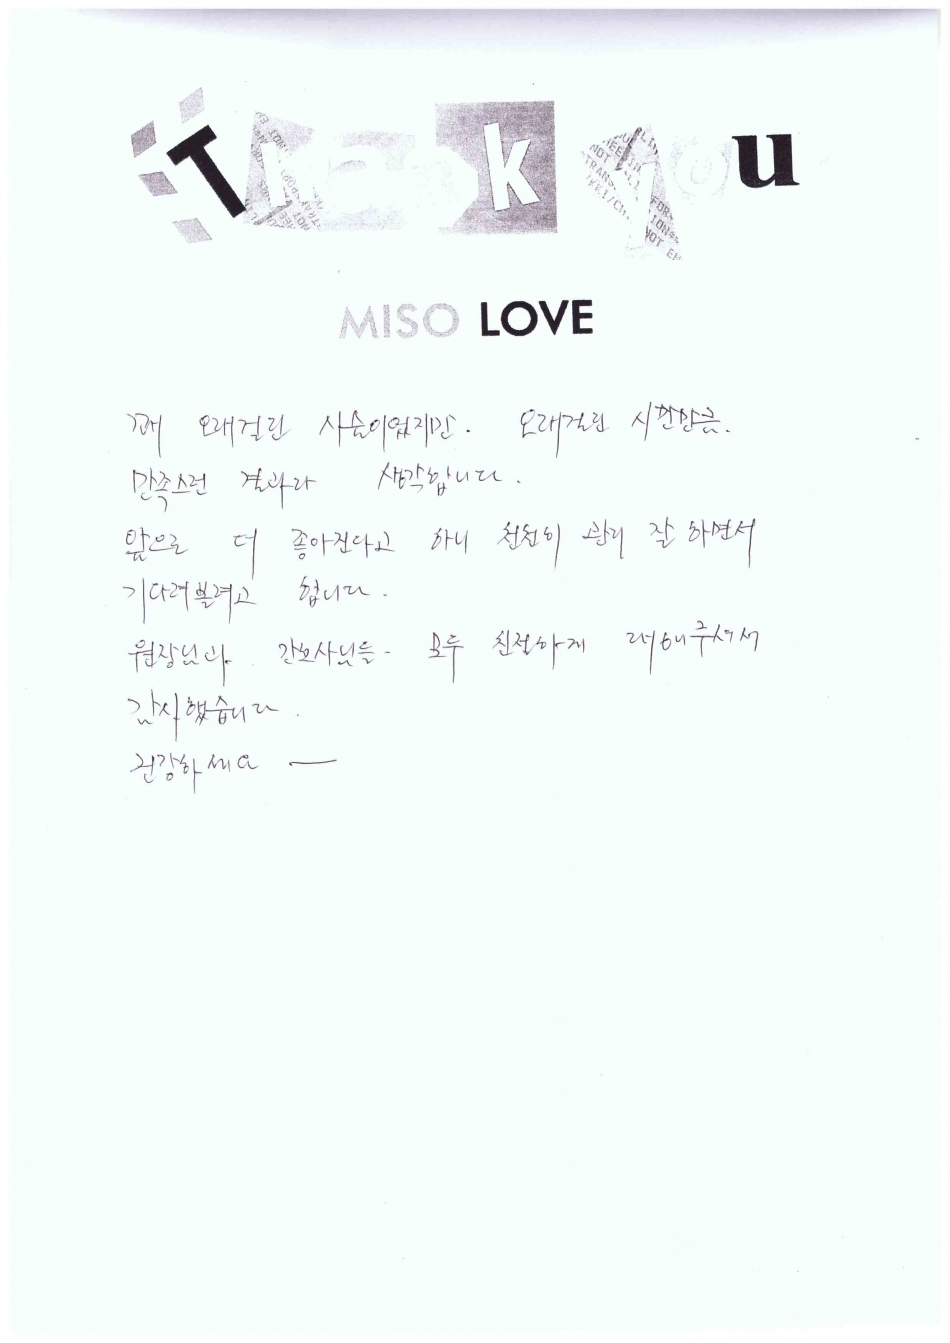 Thank you
MISO LOVE
꽤 오래걸린 시술이었지만. 오래걸린 시간만큼.
만족스런 결과라 생각합니다.
앞으로 더 좋아진다고 하니 천천히 관리 잘 하면서
기다려볼려고 합니다.
원장님과 간호사님들. 모두 친절하게 대해주셔서
감사했습니다.
건강하세요 —